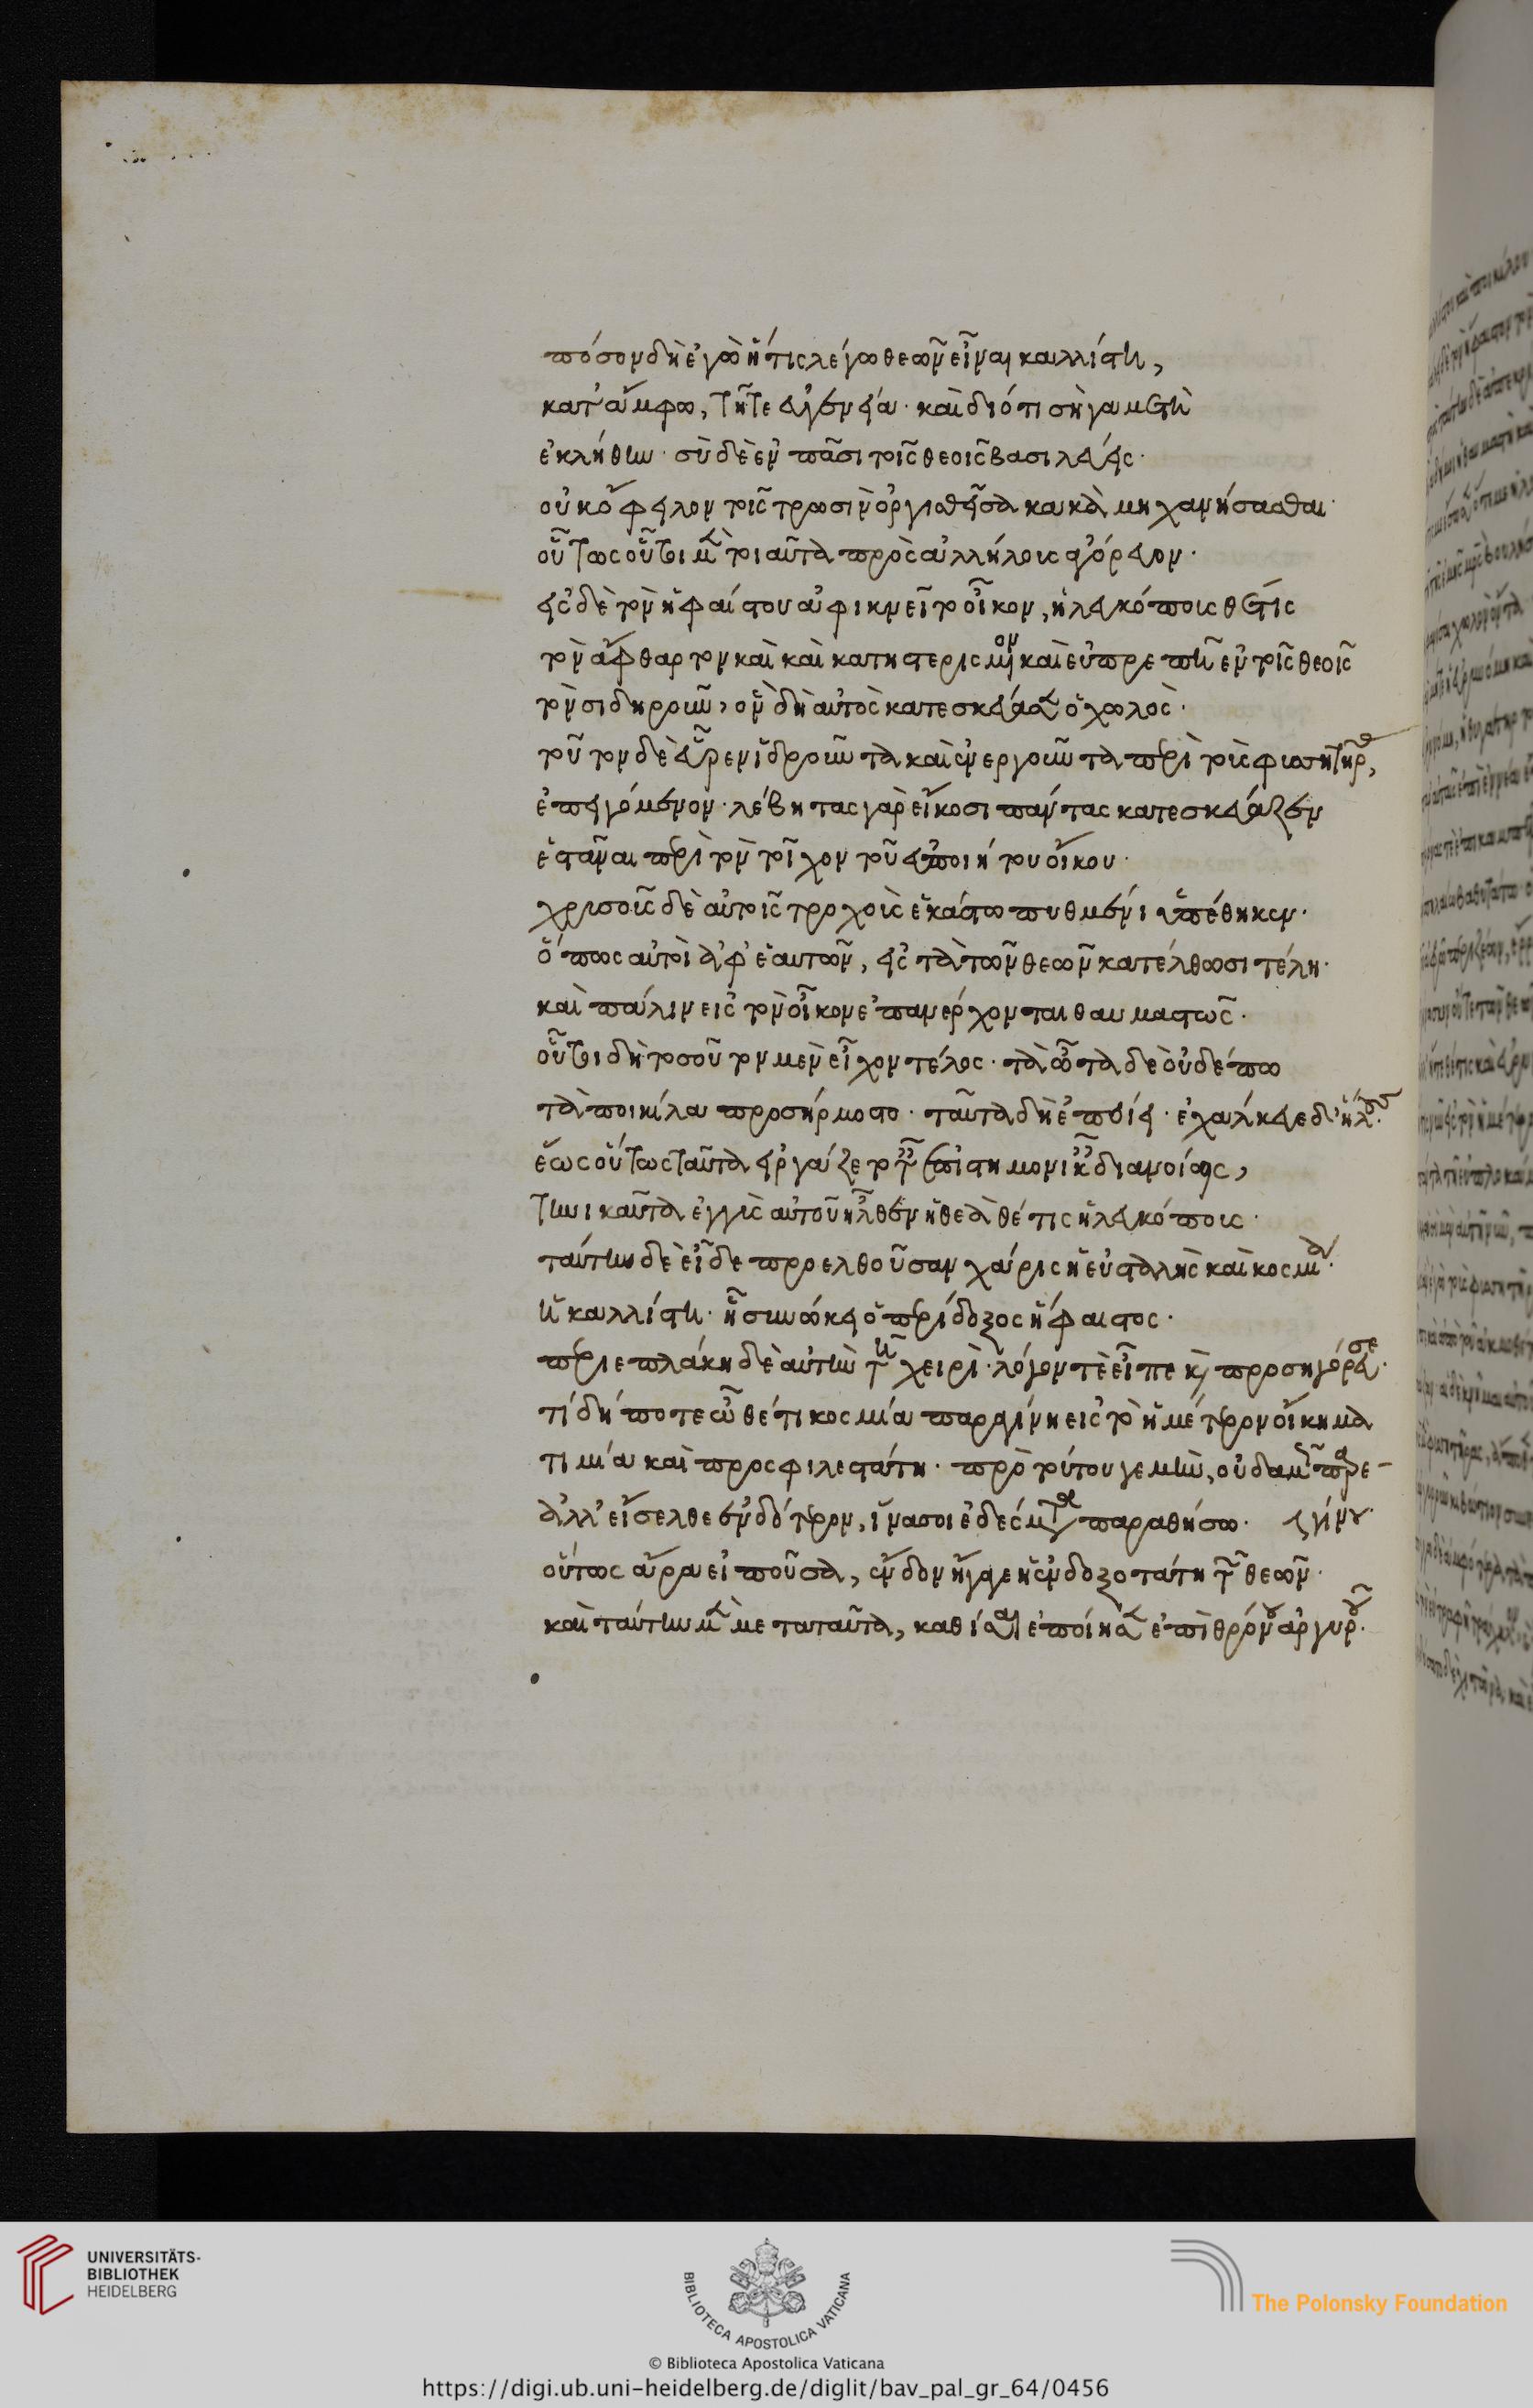 πόσον δὴ ἐγὼ ἥτις λέγω θεῶν εἶναι καλλίστη,
κατ' ἄμφω, τῆτε εὐγενεία· καὶ διότι σὴ γαμετὴ
ἐκλήθην· σὺ δὲ ἐν πᾶσι τοῖς θεοῖς βασιλεύεις·
οὐκ ὄφειλον τοῖς τρωσὶν ὀργισθεῖσα κακὰ μηχανήσασθαι·
οὕτως οὗτοι μετὰ τοιαῦτα πρὸς ἀλλήλους ἠγόρευον·
εἰς δὲ τὸν ἡφαίστου ἀφικνεῖτο οἶκον, ἡ λευκόπους θέτις
τὸν ἄφθαρτον καὶ καὶ κατηστερισμένον καὶ εὐπρεπῆ ἐν τοῖς θεοῖς
τὸν σιδηροῦν, ὃν δὴ αὐτὸς κατεσκεύασεν ὁ χωλός·
τοῦτον δὲ εὗρεν ἱδροῦντα καὶ ἐνεργοῦντα περὶ τοὺς φυσητῆρας,
ἐπειγόμενον· λέβητας γὰρ εἴκοσι πάντας κατεσκεύαζεν
ἑστάναι περὶ τὸν τοῖχον τοῦ εὐποιήτου οἴκου·
χρυσοῦς δὲ αὐτοῖς τροχοὺς ἑκάστω πυθμένι ὑπέθηκεν·
ὅπως αὐτοὶ ἀφ' ἑαυτῶν, εἰς τὰ τῶν θεῶν κατέλθωσι τέλη·
καὶ πάλιν εἰς τὸν οἶκον ἐπανέρχονται θαυμαστῶς·
οὗτοι δὴ τοσοῦτον μὲν εἶχον τέλος· τὰ ὦτα δὲ οὐδέπω
τὰ ποικίλα προσήρμοστο· ταῦτα δὴ ἐποίει· ἐχάλκευε δ' ἥλους·
ἕως οὕτως ταῦτα εἰργάζετο τῆς ἐπιστημονικῆς διανοίας,
τηνικαῦτα ἐγγὺς αὐτοῦ ἦλθεν ἡ θεὰ θέτις ἡ λευκόπους·
ταύτην δὲ εἶδε προελθοῦσαν χάρις ἡ εὐσταλὴς καὶ κοσμία·
ἡ καλλίστη· ἧ συνώκει ὁ περίδοξος ἥφαιστος·
περιεπλάκη δὲ αὐτὴν τῆ χειρί· λόγον τὲ εἶπε καὶ προσηγόρευσε·
τί δήποτε ὦ θέτι κοσμία παραγίνη εἰς τὸ ἡμέτερον οἴκημα
τιμία καὶ προσφιλεστάτη· πρὸ τούτου γε μὴν, οὐδαμῶς παρε-
ἀλλ' εἴσελθε ἐνδότερον, ἵνα σοι ἐδέσματα παραθήσω· γίνου·
οὕτως ἄρα εἰποῦσα, ἔνδον ἤγαγε ἡ ἐνδοξοτάτη τῶν θεῶν·
καὶ ταύτην μὲν μετὰ ταῦτα, καθίσαι ἐποίησεν ἐπὶ θρόνου ἀργυροῦ·
UNIVERSITÄTS-
BIBLIOTHEK
HEIDELBERG
BIBLIOTECA APOSTOLICA VATICANA
The Polonsky Foundation
© Biblioteca Apostolica Vaticana
https://digi.ub.uni-heidelberg.de/diglit/bav_pal_gr_64/0456